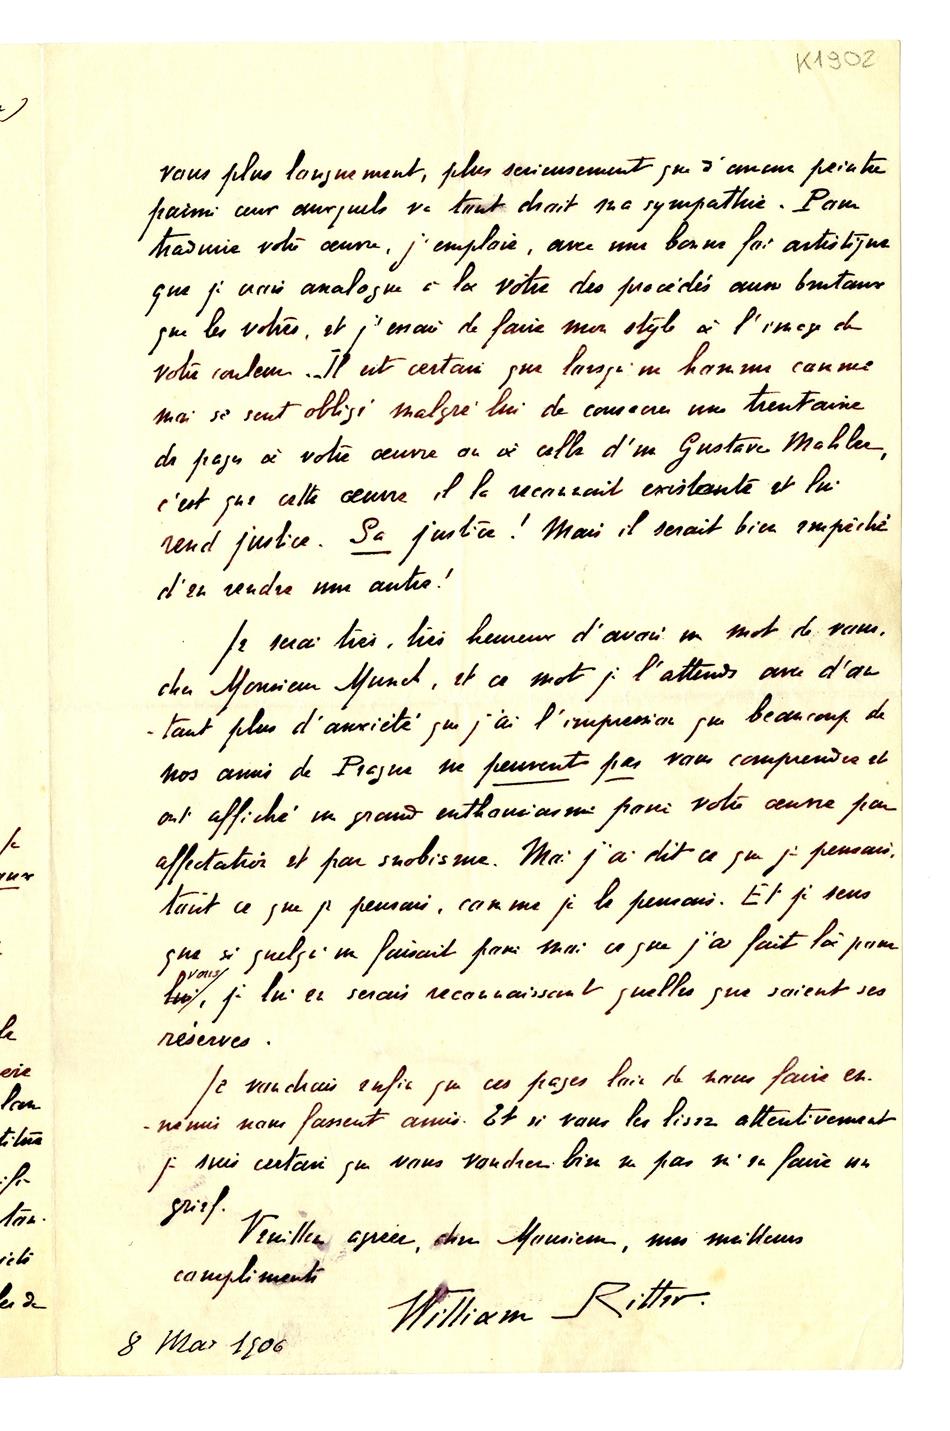 K1902
vous plus longuement, plus serieusement que d'aucun peintre
parmi ceux auxquels va tout droit ma sympathie. Pour
traduire votre œuvre, j'emploie, avec une bonne foi artistique
que je crois analogue à la vôtre des procédés aussi brutaux
que les vôtres, et j'essaie de faire mon style à l'image de
votre couleur... Il est certain que lorsqu'un homme comme
moi se sent obligé malgré lui de consacrer une trentaine
de pages à votre œuvre ou à celle d'un Gustave Mahler,
c'est que cette œuvre il la reconnait existante et lui
rend justice. Sa justice! Mais il serait bien empêché
d'en rendre une autre!
Je serai très, très heureux d'avoir un mot de vous,
cher Monsieur Munch, et ce mot je l'attends avec d'au
-tant plus d'anxiété que j'ai l'impression que beaucoup de
nos amis de Prague ne peuvent pas vous comprendre et
ont affiché un grand enthousiasme pour votre œuvre par
affectation et par snobisme. Moi j'ai dit ce que je pensais,
tout ce que je pensais, comme je le pensais. Et je sens
que si quelqu'un faisait pour moi ce que j'ai fait là pour
lui vous, je lui en serais reconnaissant quelles que soient ses
réserves.
Je voudrais enfin que ces pages loin de nous faire en-
-nemis nous fassent amis. Et si vous les lisez attentivement
je suis certain que vous voudrez bien ne pas m'en faire un
grief.
Veuillez agréer, cher Monsieur, mes meilleurs
compliments
William Ritter.
8 Mai 1906